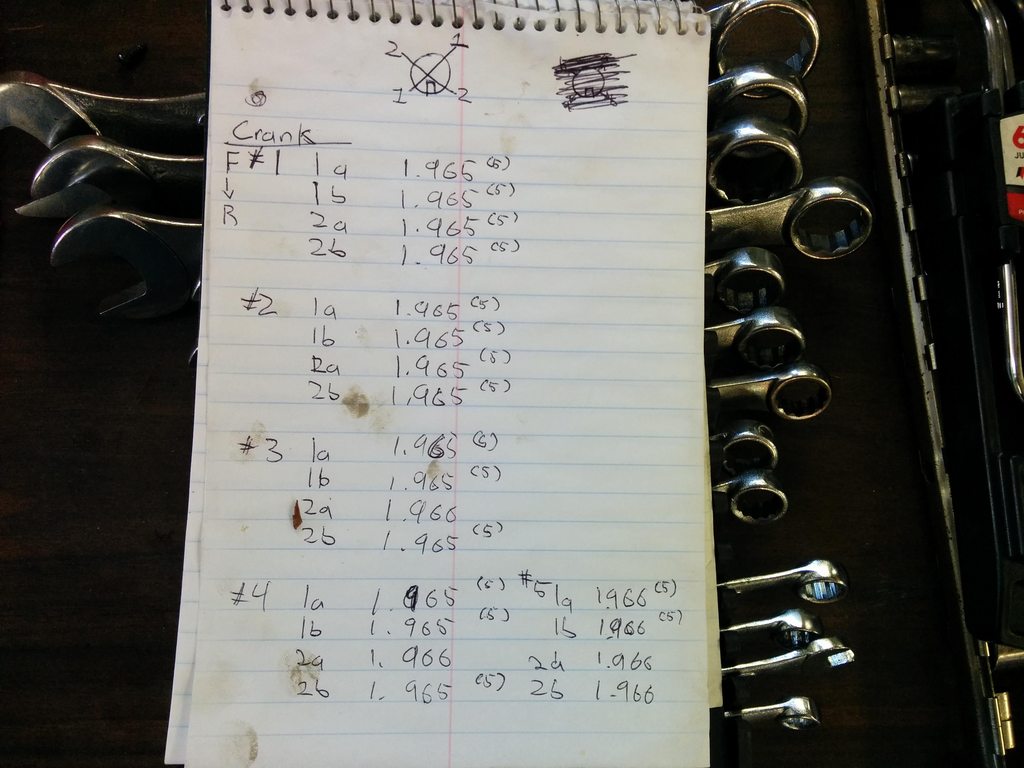 2 1
1 2
Crank
F #1 1a 1.965 (5)
↓ 1b 1.965 (5)
R 2a 1.965 (5)
2b 1.965 (5)
#2 1a 1.965 (5)
1b 1.965 (5)
2a 1.965 (5)
2b 1.965 (5)
#3 1a 1.965 (5)
1b 1.965 (5)
2a 1.966
2b 1.965 (5)
#4 1a 1.965 (5) #5 1a 1.966 (5)
1b 1.965 (5) 1b 1.966 (5)
2a 1.966 2a 1.966
2b 1.965 (5) 2b 1.966